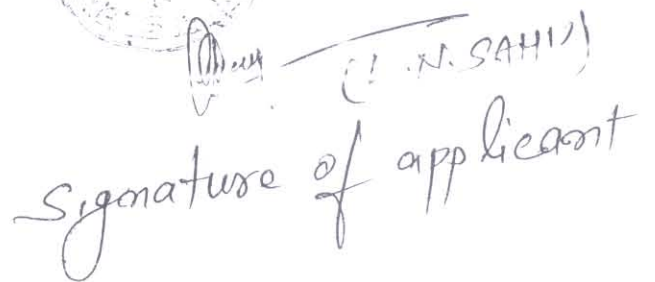 ( . N. SAHU)
Signature of applicant